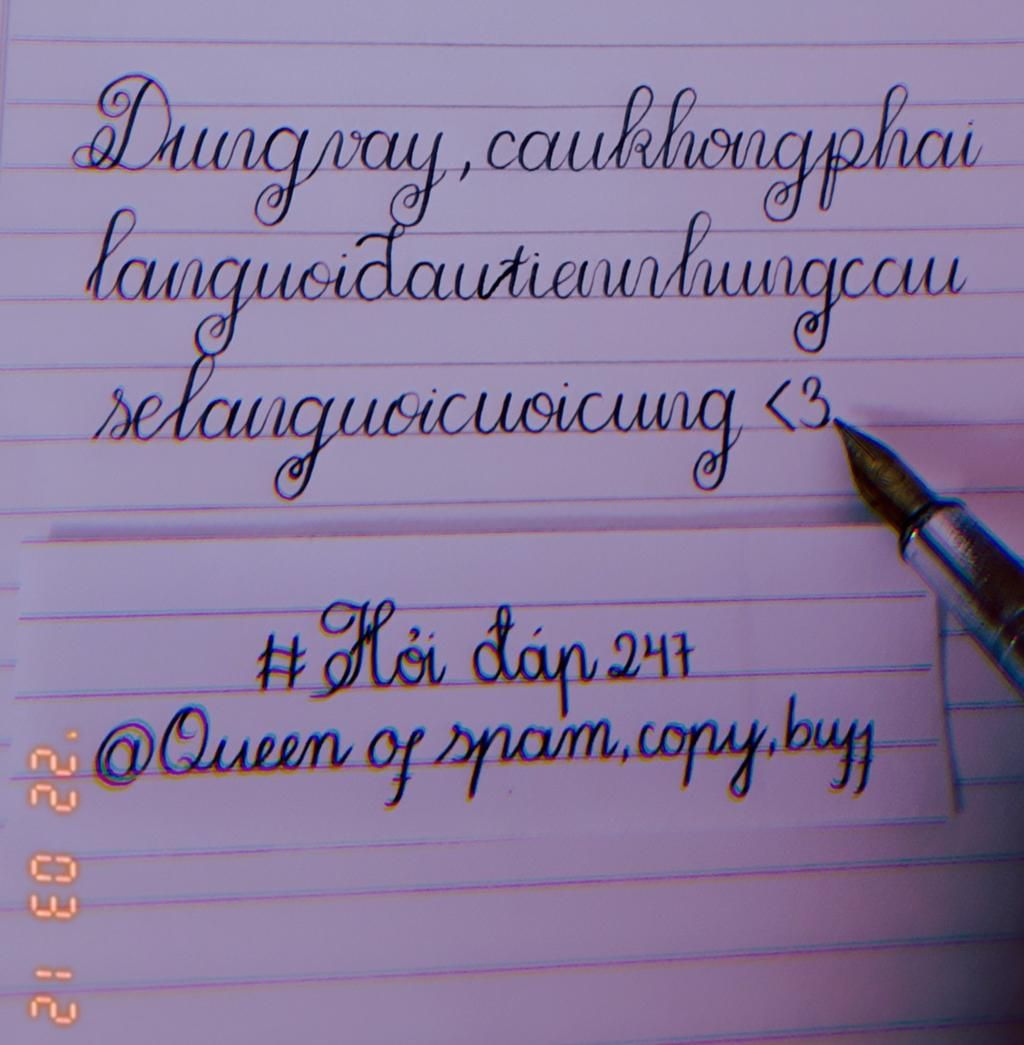 Dungvay, caukhongphai
languoiđautiennhungcau
selanguoicuoicung <3
#Hỏi đáp 247
@Queen of spam, copy, buff
21 03 22.